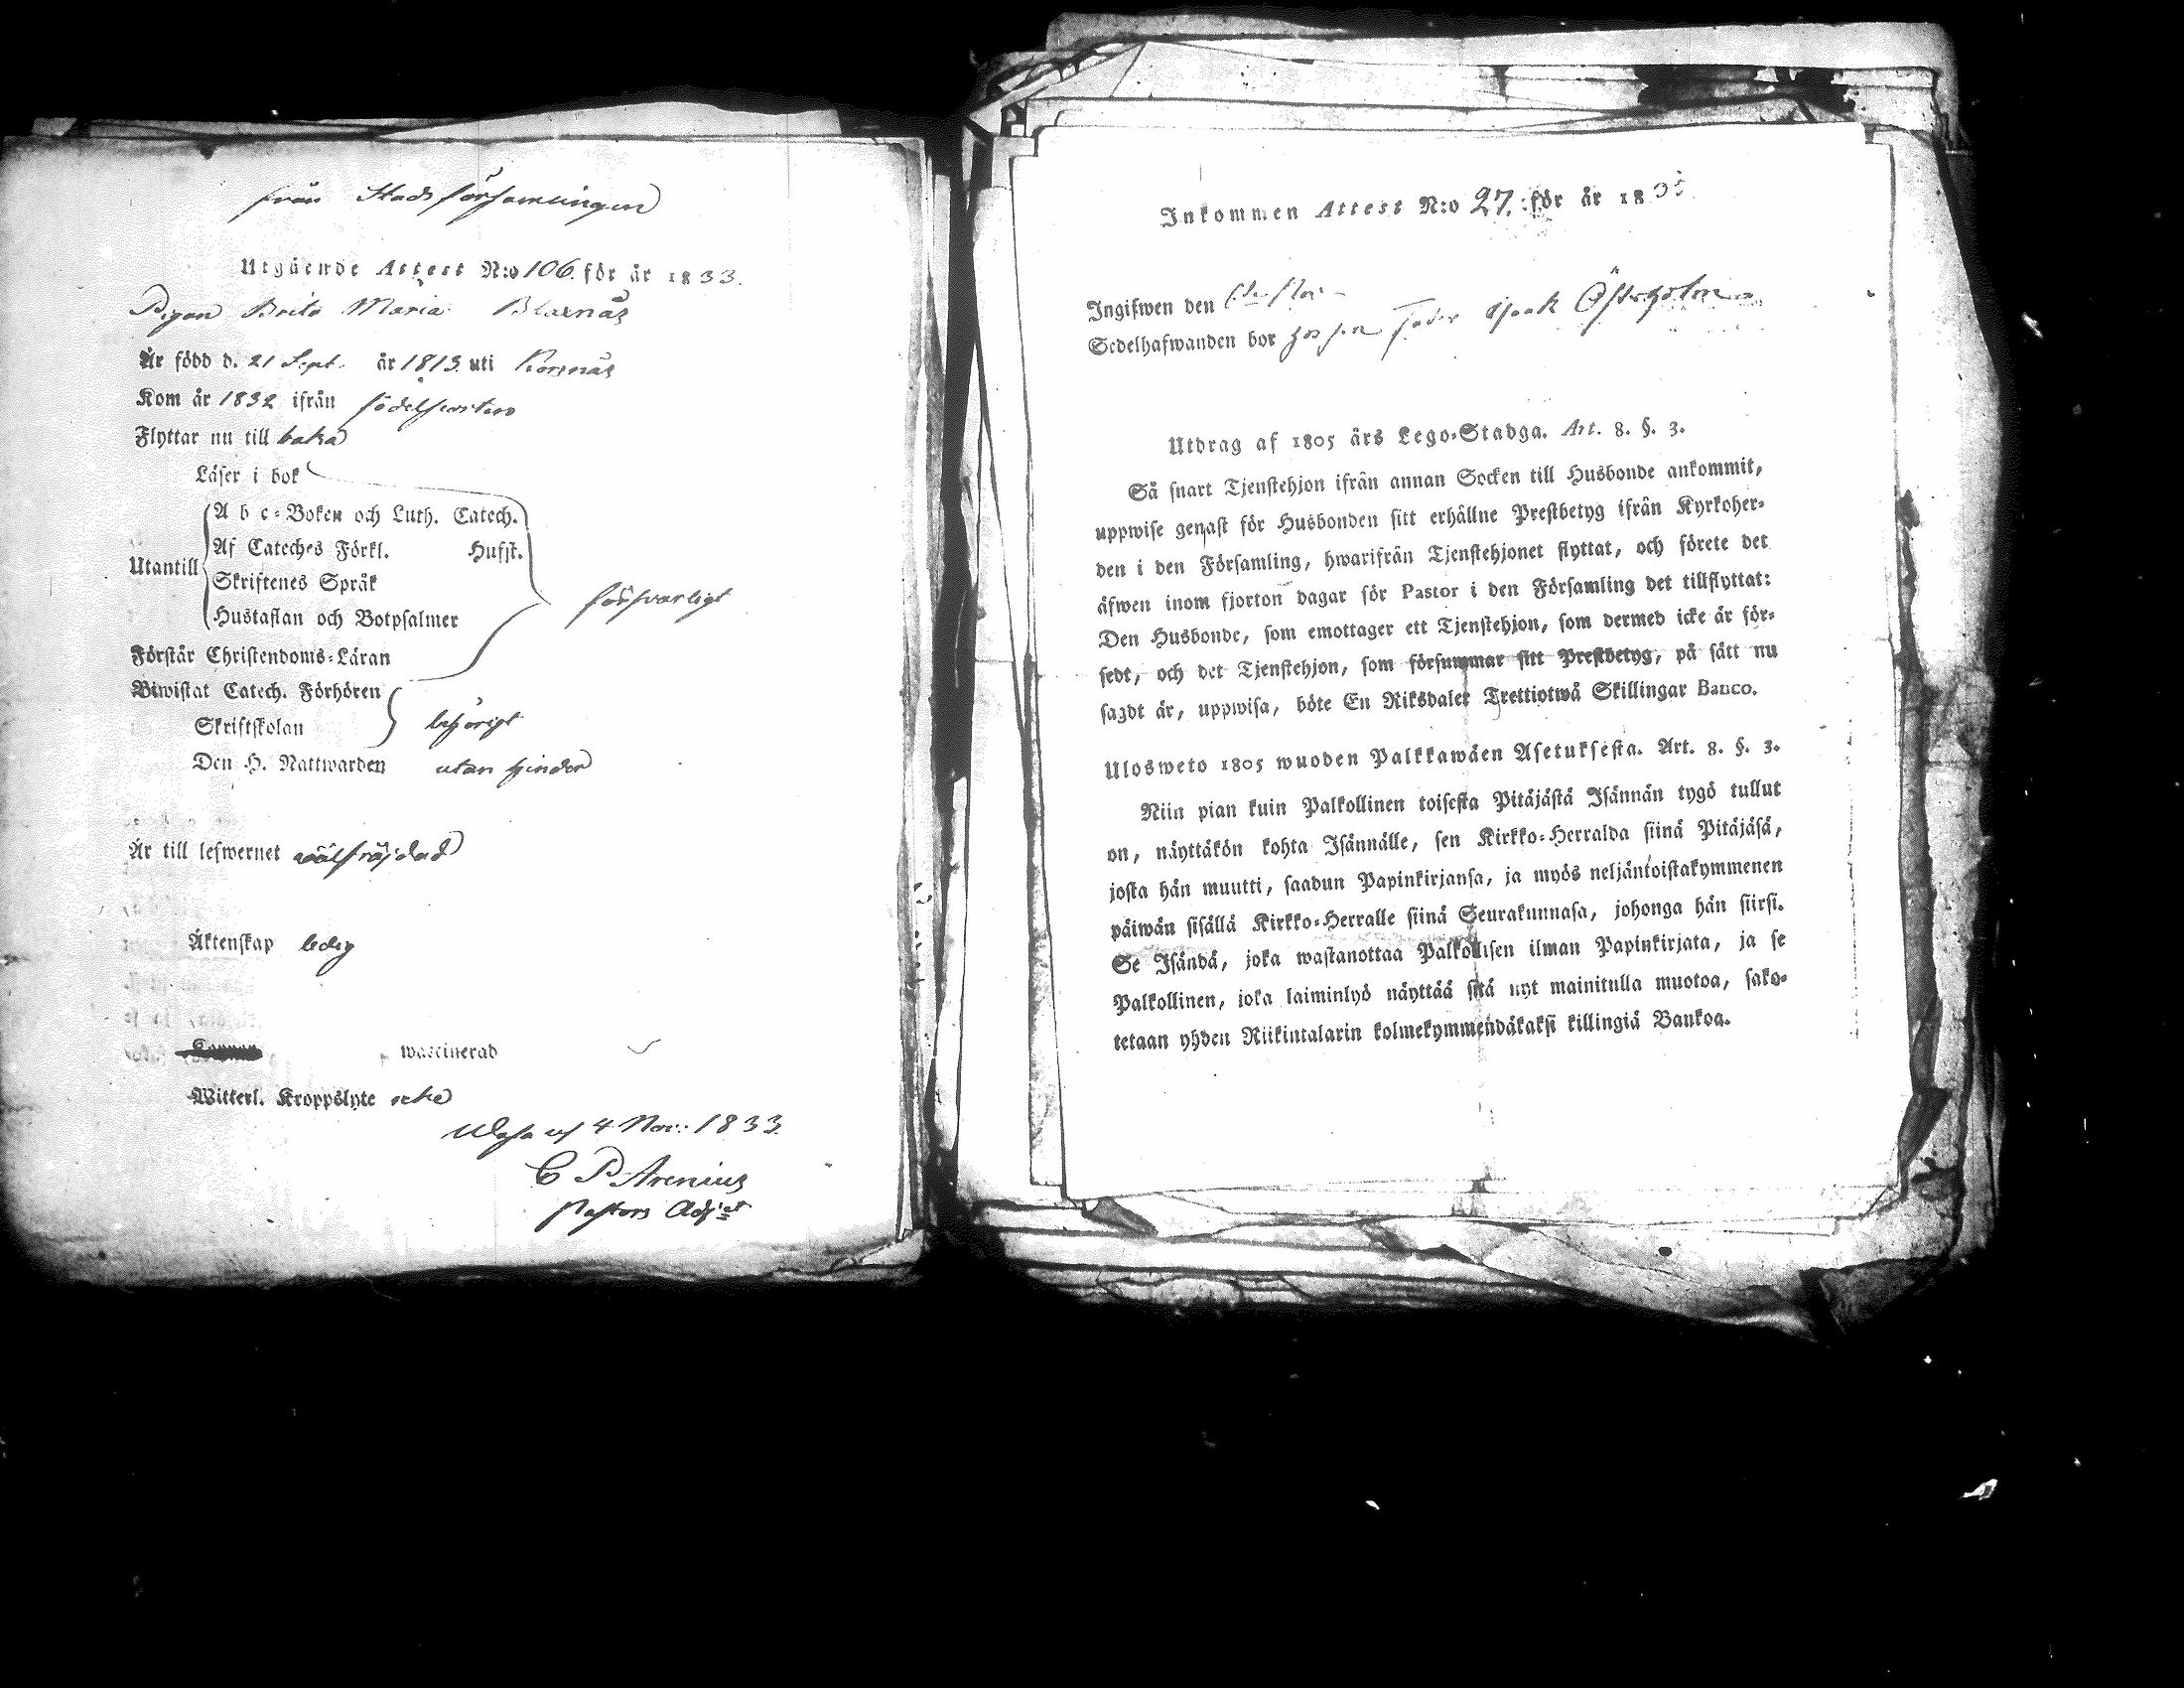 från Stadsförsamlingen
Utgående Attest N:o 106. för år 1833.
Pigan Brita Maria Blaxnäs
Är född d. 21 Sept. år 1813. uti Korsnäs
Kom år 1832 ifrån födelseorten
Flyttar nu till baka
Läser i bok
A b c-Boken och Luth. Catech.
Af Cateches Förkl. Husst.
Utantill
Skriftenes Språk
Hustaflan och Botpsalmer
försvarligt
Förstår Christendoms-Läran
Biwistat Catech. Förhören
Skriftskolan
behörigt
Den H. Nattwarden utan hinder
Är till lefwernet wälfräjdad
Äktenskap ledig
waccinerad
Witterl. Kroppslyte icke
Wasa d 4 Nov: 1833.
C P Arenius
Pastors Adj:ct
Inkommen Attest N:o 27. för år 183
Ingifwen den
Sedelhafwanden bor hos sin Österholm
Utdrag af 1805 års Lego-Stadga. Art. 8. §. 3.
Så snart Tjenstehjon ifrån annan Socken till Husbonde ankommit,
uppwise genast för Husbonden sitt erhållne Prestbetyg ifrån Kyrkoher-
den i den Församling, hwarifrån Tjenstehjonet flyttat, och förete det
äfwen inom fjorton dagar för Pastor i den Församling det tillflyttat:
Den Husbonde, som emottager ett Tjenstehjon, som dermed icke är för-
sedt, och det Tjenstehjon, som försummar sitt Prestbetyg, på sätt nu
sagdt är, uppwisa, böte En Riksdaler Trettiotwå Skillingar Banco.
Ulosweto 1805 wuoden Palkkawäen Asetuksesta. Art. 8. §. 3.
Niin pian kuin Palkollinen toisesta Pitäjästä Isännän tygö tullut
on, näyttäkön kohta Isännälle, sen Kirkko-Herralda siinä Pitäjäsä,
josta hän muutti, saadun Papinkirjansa, ja myös neljäntoistakymmenen
päiwän sisällä Kirkko-Herralle siinä Seurakunnasa, johonga hän siirsi.
Se Isändä, joka wastanottaa Palkollisen ilman Papinkirjata, ja se
Palkollinen, joka laiminlyö näyttää sitä nyt mainitulla muotoa, sako-
tetaan yhden Riikintalarin kolmekymmendäkaksi killingiä Bankoa.